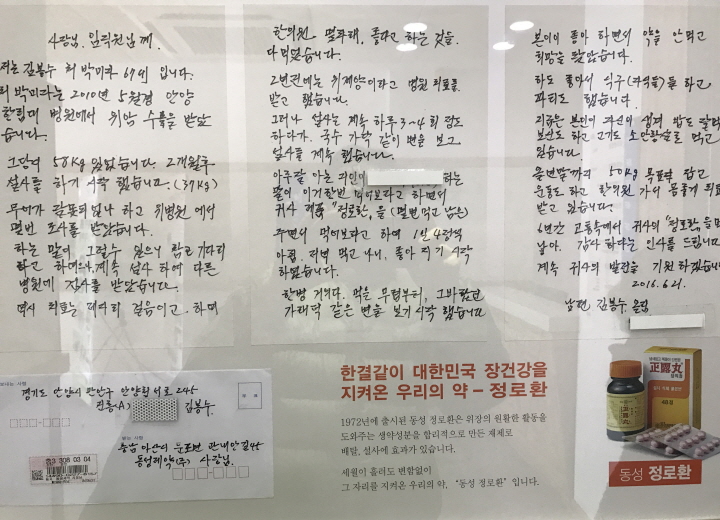 사장님. 임직원님께.
저는 김봉수 처 박미라 69세 입니다.
처 박미라는 2010년 5월경 안양
한림대 병원에서 위암 수술을 받았
습니다.
그당시 50kg 있었습니다. 2개월후
설사를 하기 시작 했습니다. (37kg)
무엇이 잘못되었나 하고 위병원에서
몇번 조사를 받았습니다.
하는 말이 그럴수 있으니 참고 기다리
라고 하며 계속 설사 하여 다른
병원에 진사를 받았습니다.
역시 치료는 제자리 걸음이고. 하며
한의원, 좋다고 하는 것을.
다 먹었습니다.
2년전에는 위궤양이라고 병원 치료를
받고 했습니다.
그러나 설사는 계속 하루 3~4회 정도
하다가. 국수 가락 같이 변을 보고
설사를 계속 했습니다.
아주잘 아는 지인 하는
말이 이거한번 먹어보라고 하면서
귀사 제품 "정로환"을 (몇번먹고 남은)
주면서 먹어보라고 하여 1일 4정씩
아침. 저녁 먹고 나니. 좋아 지기 시작
하였습니다.
한병 거의다. 먹을 무렵부터, 그 바라던
가래떡 같은 변을 보기 시작 했습니다
본인이 좋아 하면서 약을 안먹고
희망을 찾았습니다.
하도 좋아서 식구(자식들)들 하고
파티도 했습니다.
지금은 본인이 자신이 생겨 밥도 잘먹
보신도 하고 고기도 소안창살로 먹고
있습니다.
올 연말까지 50kg 목표를 잡고
운동도 하고 한의원 가서 동물게 치료
받고 있습니다.
6년간 고통속에서 귀사의 "정로환"을 먹
낳아. 감사 하다는 인사를 드립니다.
계속 귀사의 발전을 기원 하겠습니
2016.6.21.
남편 김봉수 올림
보내는 사람
경기도 안양시 만안구 안양천서로 245
(A) 김봉수.
308 03 04
받는 사람
충남 아산시 둔포면 관대안길
동성제약(주) 사장님.
한결같이 대한민국 장건강을
지켜온 우리의 약 – 정로환
1972년에 출시된 동성 정로환은 위장의 원활한 활동을
도와주는 생약성분을 합리적으로 만든 제제로
배탈, 설사에 효과가 있습니다.
세월이 흘러도 변함없이
그 자리를 지켜온 우리의 약, "동성 정로환" 입니다.
正露丸
正露丸
동성 정로환